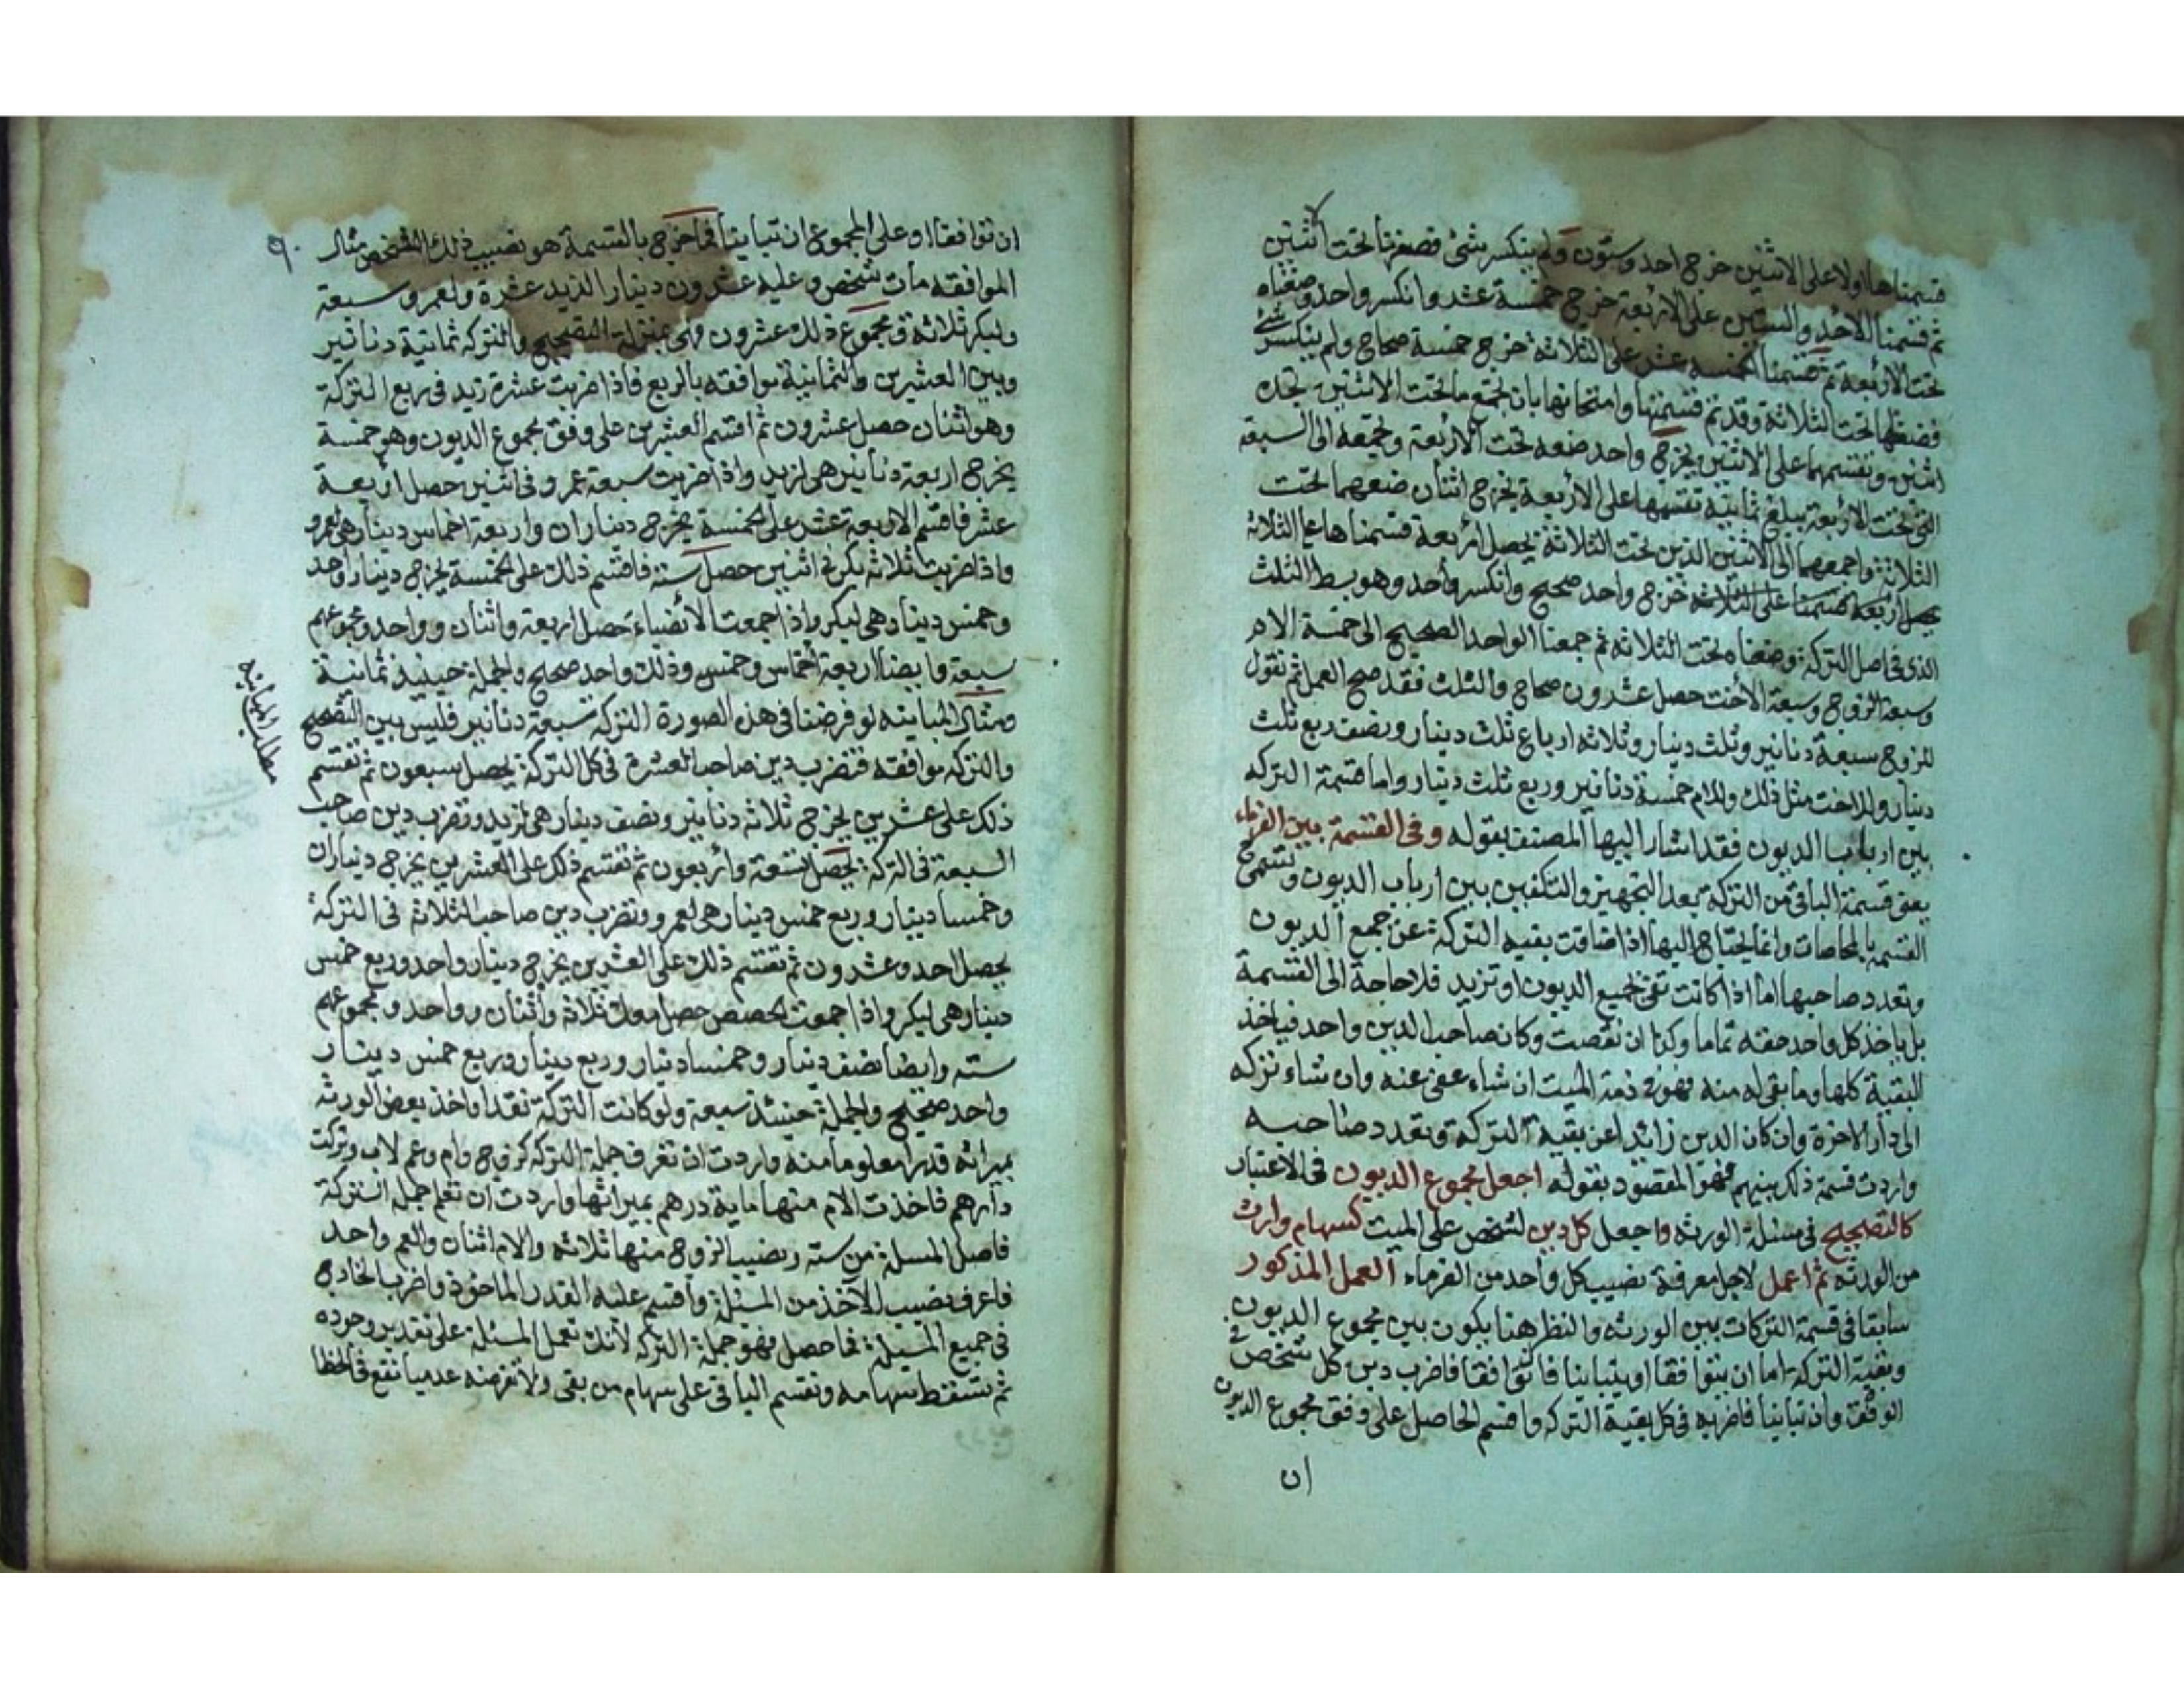 قسمناها اولا على الاثنين خرج احد وستون ولم ينكسر شئ فصفرنا تحت الاثنين
ثم قسمنا الاحد والستين على الاربعة خرج خمسة عشر وانكسر واحد وضعناه
تحت الاربعة ثم قسمنا الخمسة عشر على الثلاثة خرج خمسة صحاح ولم ينكسر شئ
فصفرنا تحت الثلاثة وقد تم قسمتها وامتحانها بان تجمع ما تحت الاثنين تجده
اثنين وتقسمهما على الاثنين يخرج واحد ضعه تحت الاربعة وتجمعه الى السبعة
التي تحت الاربعة يبلغ ثمانية تقسمها على الاربعة يخرج اثنان ضعهما تحت
الثلاثة واجمعهما الى الاثنين الذين تحت الثلاثة يحصل اربعة قسمناها على الثلاثة
يحصل اربعة قسمنا على الثلاثة خرج واحد صحيح وانكسر واحد وهو بسط الثلث
الذي في اصل التركة وضعناه تحت الثلاثة ثم جمعنا الواحد الصحيح الى خمسة الام
وسبعة الزوج وسبعة الأخت حصل عشرون صحاح والثلث فقد صح العمل ثم نقول
للزوج سبعة دنانير وثلث دينار وثلاثة ارباع ثلث دينار ونصف ربع ثلث
دينار وللاخت مثل ذلك وللام خمسة دنانير وربع ثلث دينار واما قسمة التركة
بين ارباب الديون فقد اشار اليها المصنف بقوله وفى القسمة بين الغرماء
يعنى قسمة الباقى من التركة بعد التجهيز والتكفين بين ارباب الديون وتسمى
القسمة بالمحاصات وانما يحتاج اليها اذا ضاقت بقية التركة عن جمع الديون
وتعدد صاحبها اما اذا كانت تفى بجميع الديون او تزيد فلا حاجة الى القسمة
بل ياخذ كل واحد حقه تماما وكذا ان نقصت وكان صاحب الدين واحد فياخذ
البقية كلها وما بقى له منه فهو في ذمة الميت ان شاء عفى عنه وان شاء تركه
الى دار الاخرة وان كان الدين زائدا عن بقية التركة وتعدد صاحبه
واردت قسمة ذلك بينهم فهو المقصود بقوله اجعل مجموع الديون في الاعتبار
كالتصحيح في مسئلة الورثة واجعل كل دين لشخص على الميت كسهام وارث
من الورثة ثم اعمل لاجل معرفة نصيب كل واحد من الغرماء العمل المذكور
سابقا في قسمة التركات بين الورثة والنظر هنا يكون بين مجموع الديون
وبقية التركة اما ان يتوافقا او يتباينا فان توافقا فاضرب دين كل شخص في
الوفق وان تباينا فاضربه في كل بقية التركة واقسم الحاصل على وفق مجموع الديون
ان
٩٠
ان توافقا او على المجموع ان تباينا فما خرج بالقسمة هو نصيب ذلك الشخص مثال
الموافقة مات شخص وعليه عشرون دينارا لزيد عشرة ولعمرو سبعة
ولبكر ثلاثة ومجموع ذلك عشرون وهى بمنزلة التصحيح والتركة ثمانية دنانير
وبين العشرين والثمانية موافقة بالربع فاذا ضربت عشرة زيد في ربع التركة
وهو اثنان حصل عشرون ثم اقسم العشرين على وفق مجموع الديون وهو خمسة
يخرج اربعة دنانير هى لزيد واذا ضربت سبعة عمرو في اثنين حصل اربعة
عشر فاقسم الاربعة عشر على الخمسة يخرج ديناران واربعة اخماس دينار هى لعمرو
واذا ضربت ثلاثة بكر في اثنين حصل ستة فاقسم ذلك على الخمسة يخرج دينار واحد
وخمس دينار هى لبكر واذا جمعت الأنصباء حصل اربعة واثنان وواحد ومجموعهم
سبعة وايضا اربعة اخماس وخمس وذلك واحد صحيح والجملة حينيذ ثمانية
ومثال المباينة لو فرضنا في هذه الصورة التركة سبعة دنانير فليس بين التصحيح
والتركة موافقة فتضرب دين صاحب العشرة في كل التركة يحصل سبعون ثم تقسم
ذلك على عشرين يخرج ثلاثة دنانير ونصف دينار هى لزيد وتضرب دين صاحب
السبعة في التركة يحصل تسعة واربعون ثم تقسم ذلك على العشرين يخرج ديناران
وخمسا دينار وربع خمس دينار هى لعمرو وتضرب دين صاحب الثلاثة في التركة
يحصل احد وعشرون ثم تقسم ذلك على العشرين يخرج دينار واحد وربع خمس
دينار هى لبكر واذا جمعت الحصص حصل معك ثلاثة واثنان وواحد ومجموعهم
ستة وايضا نصف دينار وخمسا دينار وربع دينار وربع خمس دينار
واحد صحيح والجملة حينئذ سبعة ولو كانت التركة نقدا واخذ بعض الورثة
بميراثه قدرا معلوما منه واردت ان تعرف جملة التركة كزوج وام وعم لاب وتركت
دارهم فاخذت الام منها ماية درهم بميراثها واردت ان تعلم جملة التركة
فاصل المسلة من ستة ونصيب الزوج منها ثلاثة والام اثنان والعم واحد
فاعرف نصيب الآخذ من المسئلة واقسم عليه القدر الماخوذ واضرب الخارج
في جميع المسيلة فما حصل فهو جملة التركة لأنك تعمل المسئلة على تقدير وجوده
ثم تسقط سهامه وتقسم الباقى على سهام من بقى ولا تفرضه عدما تقع في الخطا
مطلب المباينة